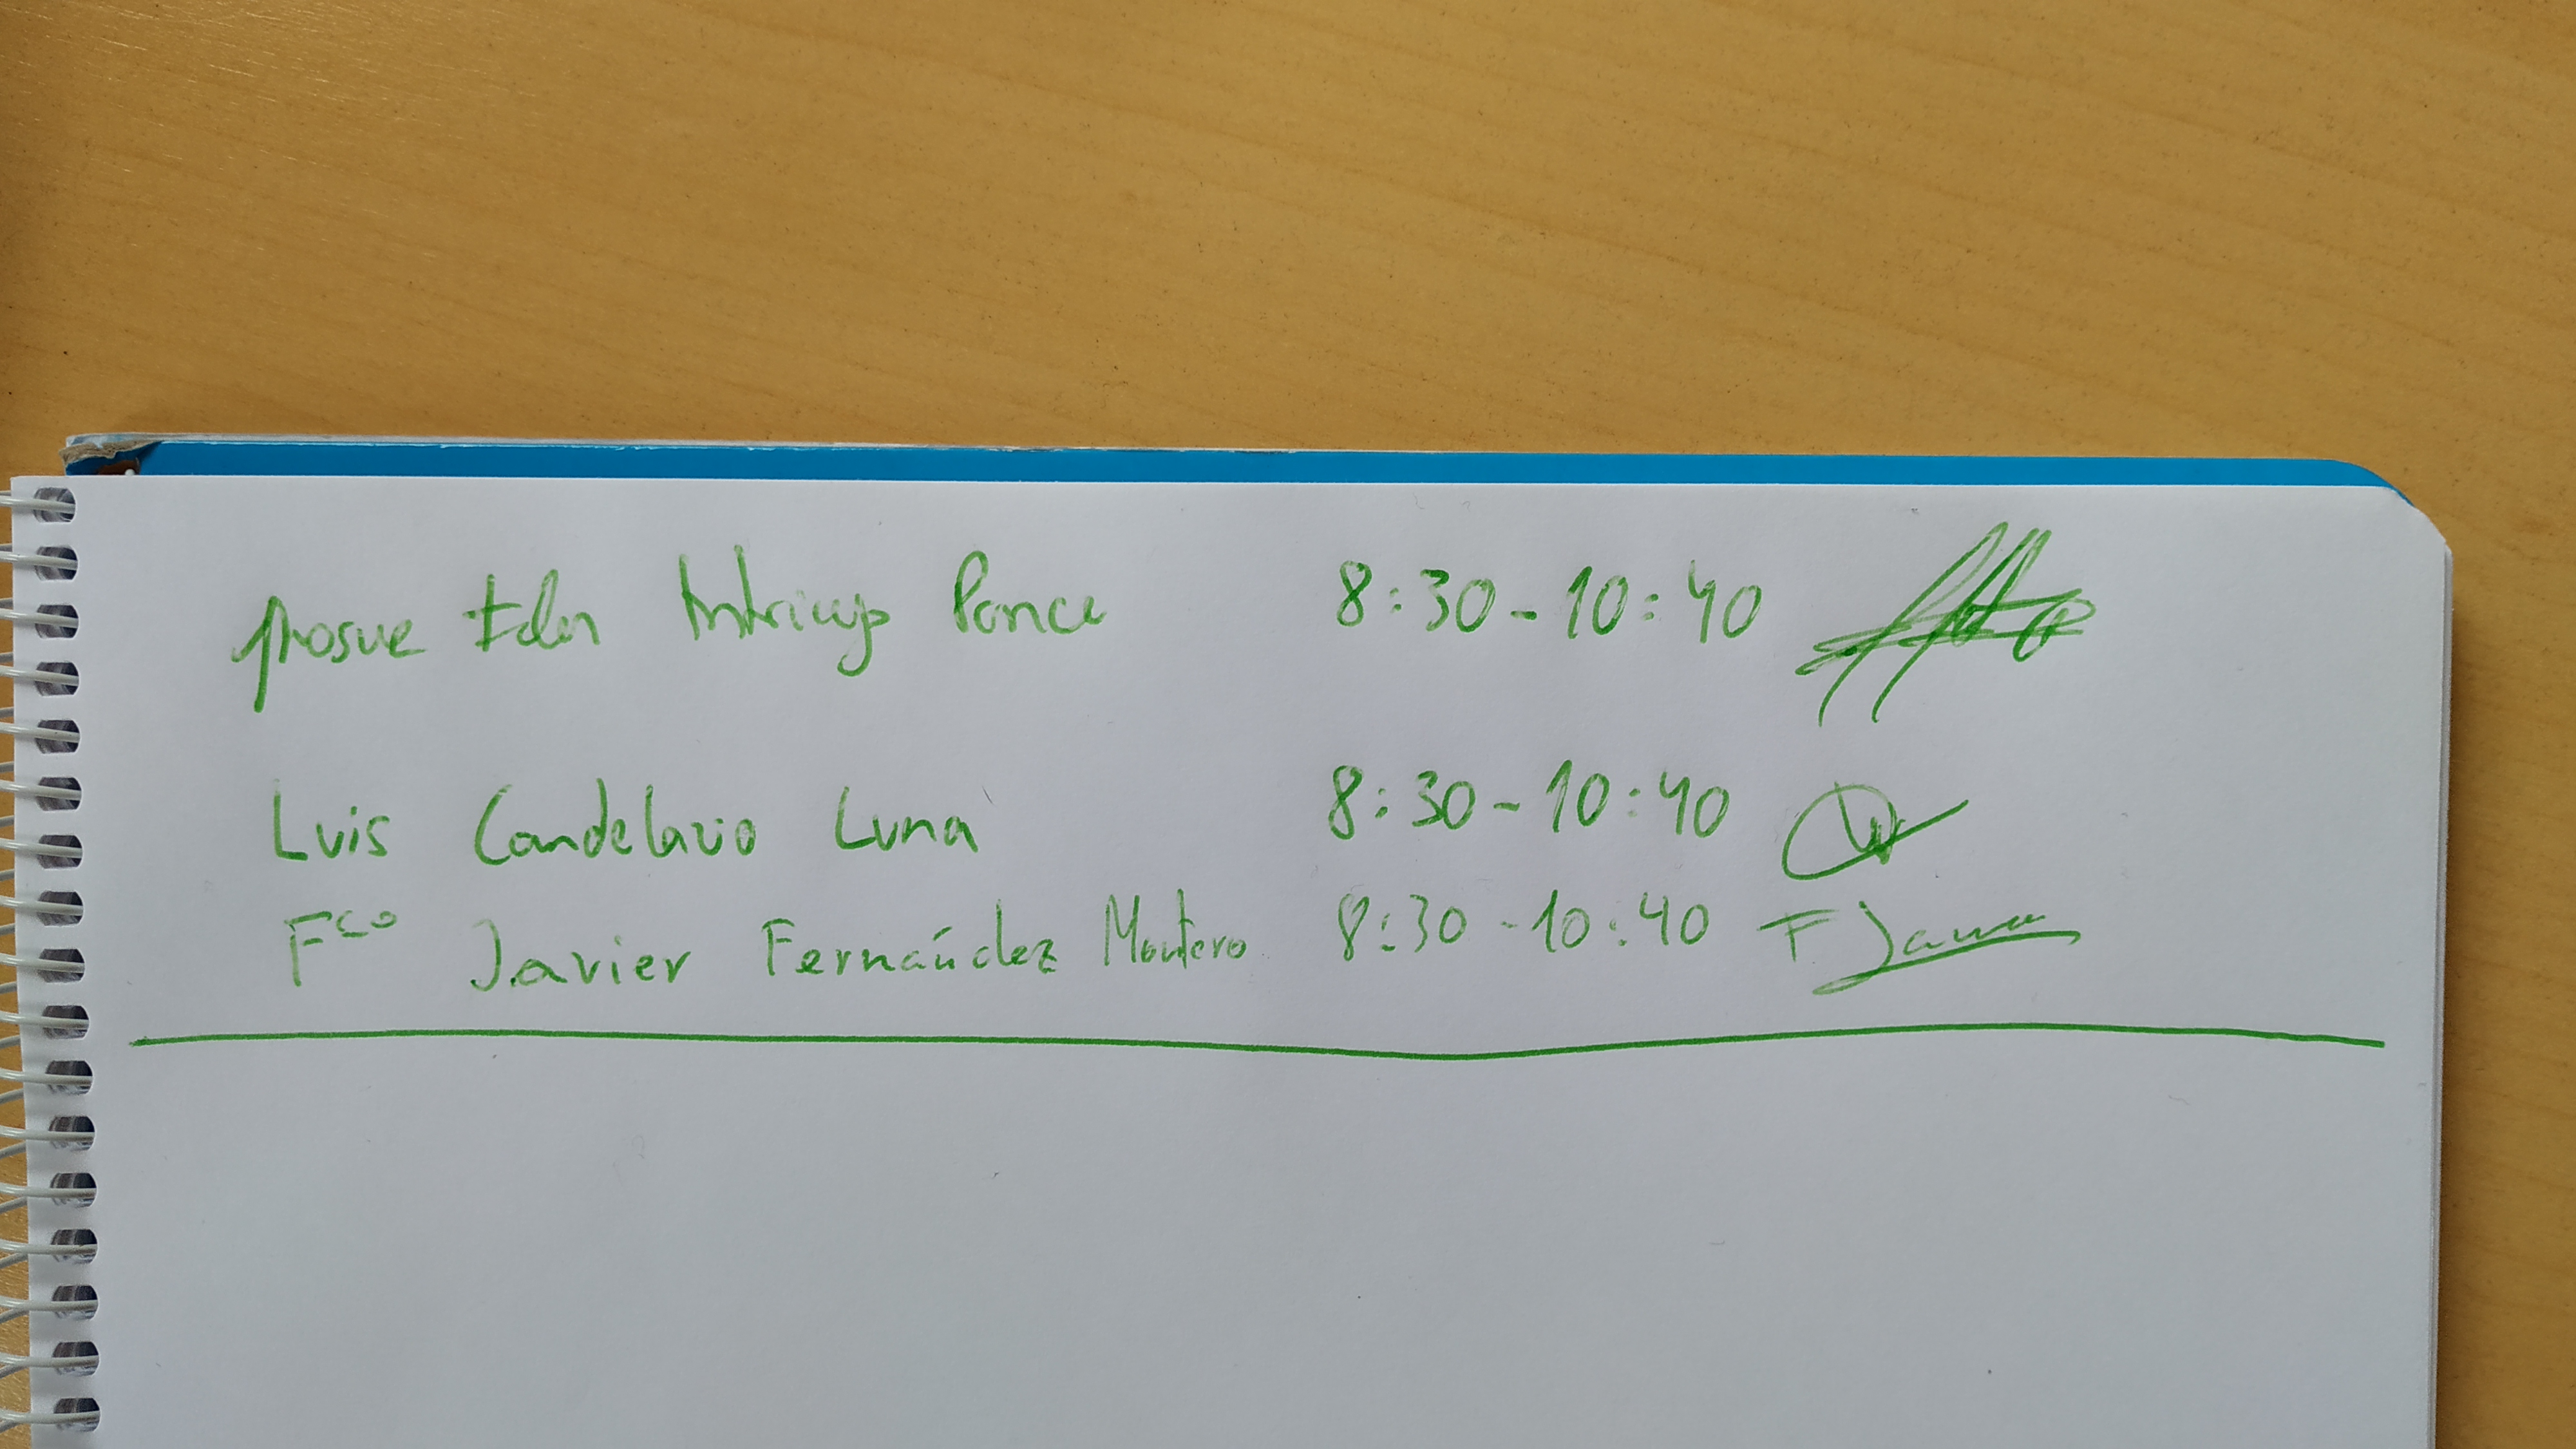 Josue Ponce 8:30-10:40
Luis Candelario Luna 8:30-10:40
Fco Javier Fernández Montero. 8:30-10:40 F Javier